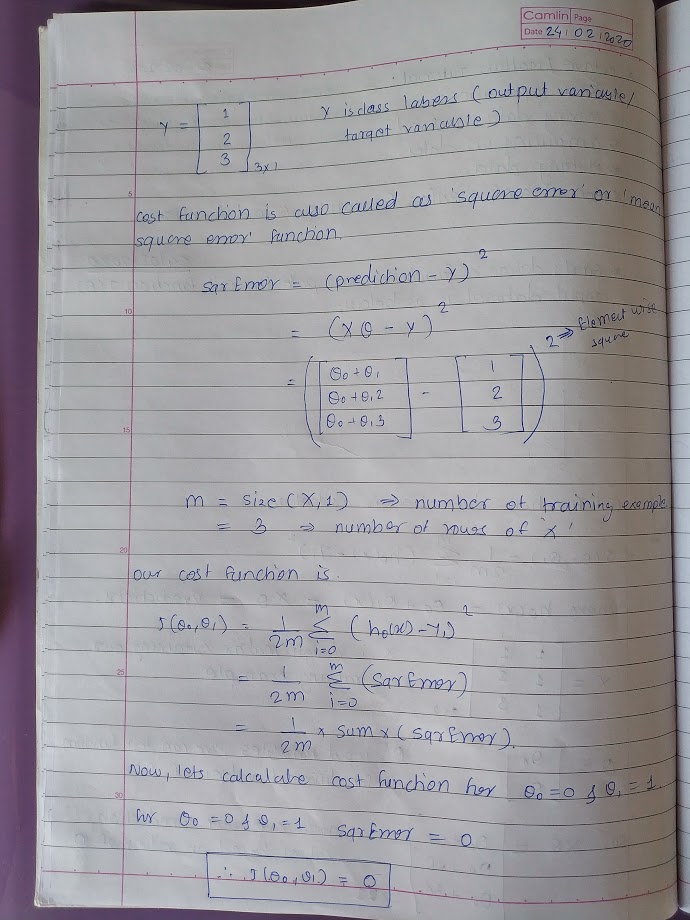 Camlin Page
Date 24 / 02 / 2020
Y = [ 1 2 3 ] 3x1 Y is class labers (output variable/
target variable)
5
Cost function is also called as 'square error' or 'mean
square error' function.
sqrError = (prediction - Y)²
10
= (Xθ - Y)²
= ( [ θ₀ + θ₁
θ₀ + θ₁2
θ₀ + θ₁3 ] - [ 1
2
3 ] )² ⇒ Element wise
square
15
m = size (X,1) ⇒ number of training example
= 3 ⇒ number of rows of 'X'
20
our cost function is.
J(θ₀,θ₁) = 1/2m Σ i=0 m (hθ(x) - Yi)²
25
= 1/2m Σ i=0 m (sqrError)
= 1/2m × sum × (sqrError).
Now, lets calculate cost function for θ₀ = 0 & θ₁ = 1.
30
for θ₀ = 0 & θ₁ = 1 sqrError = 0
∴ J(θ₀,θ₁) = 0